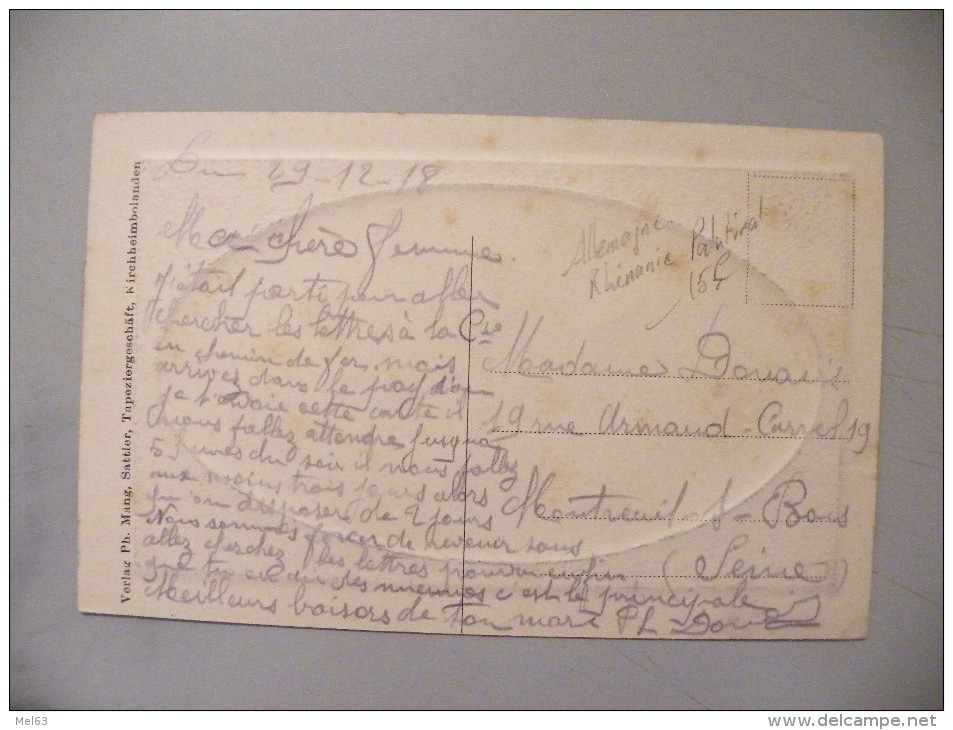 29-12-18
Ma chère femme.
J'étais parti pour aller
chercher les lettres à la Cie
en chemin de fer mais
arrivez dans le pay d'ou
je t'envoie cette carte il
nous fallez attendre jusqua
5 heures du soir il nous fallez
aux moins trois jours alors
qu'on disposer de 2 jours
Nous sommes forcer de revenir sans
allez cherchez les lettres pourvu enfin
que tu ai des miennes c'est le principale
Meilleurs baisers de ton mari PL
Allemagne
Rhénanie Palatinat
15F
Madame Douai
19 rue Armand-Carrel 19
Montreuil-s-Bois
(Seine)
Verlag Ph. Mang, Sattler, Tapeziergeschäft, Kirchheimbolanden
Mel63
www.delcampe.net